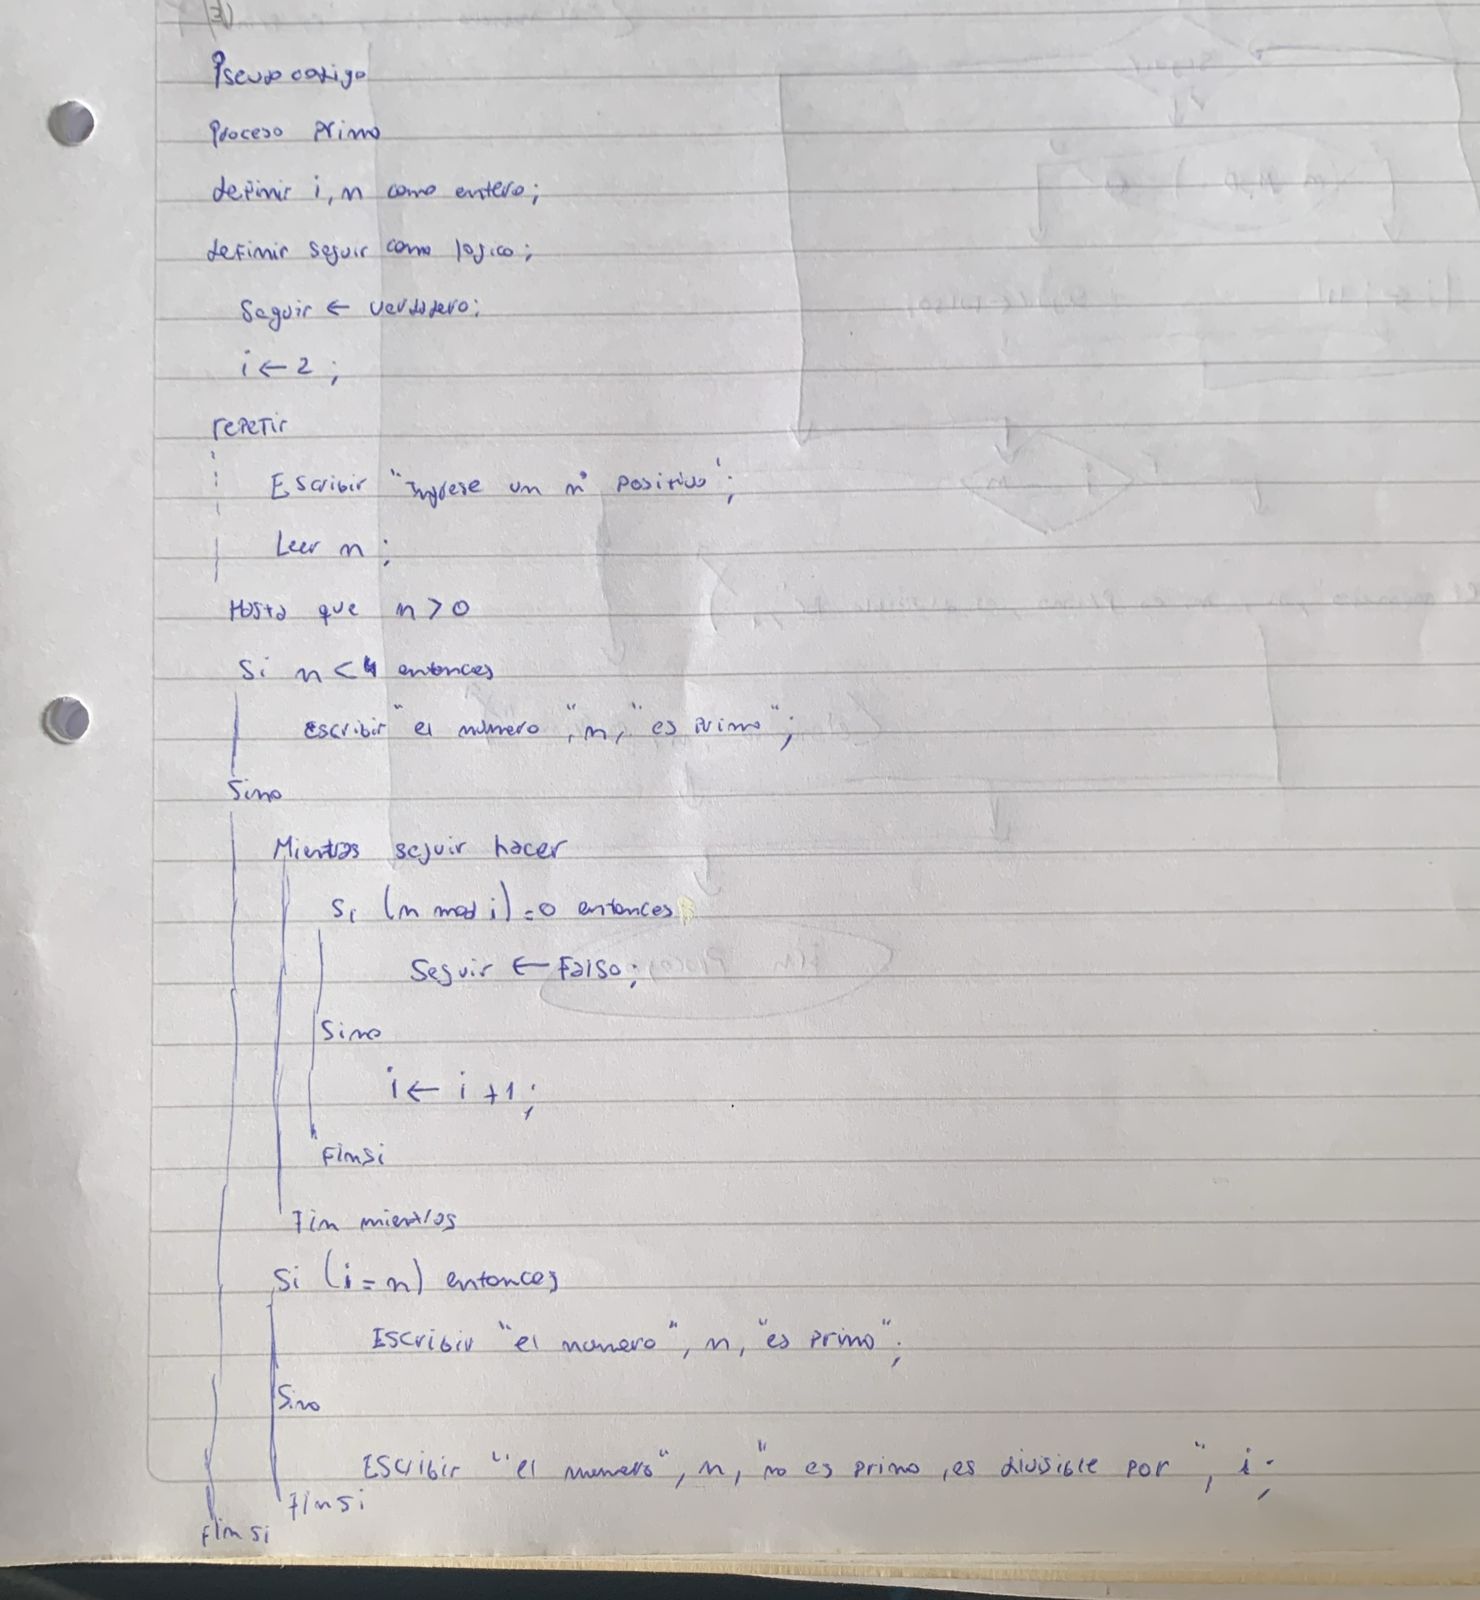 3)
Pseudo codigo
Proceso primo
definir i, n como entero;
definir seguir como logico;
Seguir ← verdadero;
i ← 2 ;
repetir
Escribir "Ingrese un n° positivo";
Leer n ;
Hasta que n > 0
Si n < 4 entonces
Escribir "el numero", n, "es primo";
Sino
Mientras seguir hacer
Si (n mod i) = 0 entonces
Seguir ← Falso;
Sino
i ← i + 1 ;
Finsi
Fin mientras
Si (i = n) entonces
Escribir "el numero", n, "es primo";
Sino
Escribir "el numero", n, "no es primo, es divisible por", i;
Finsi
Finsi